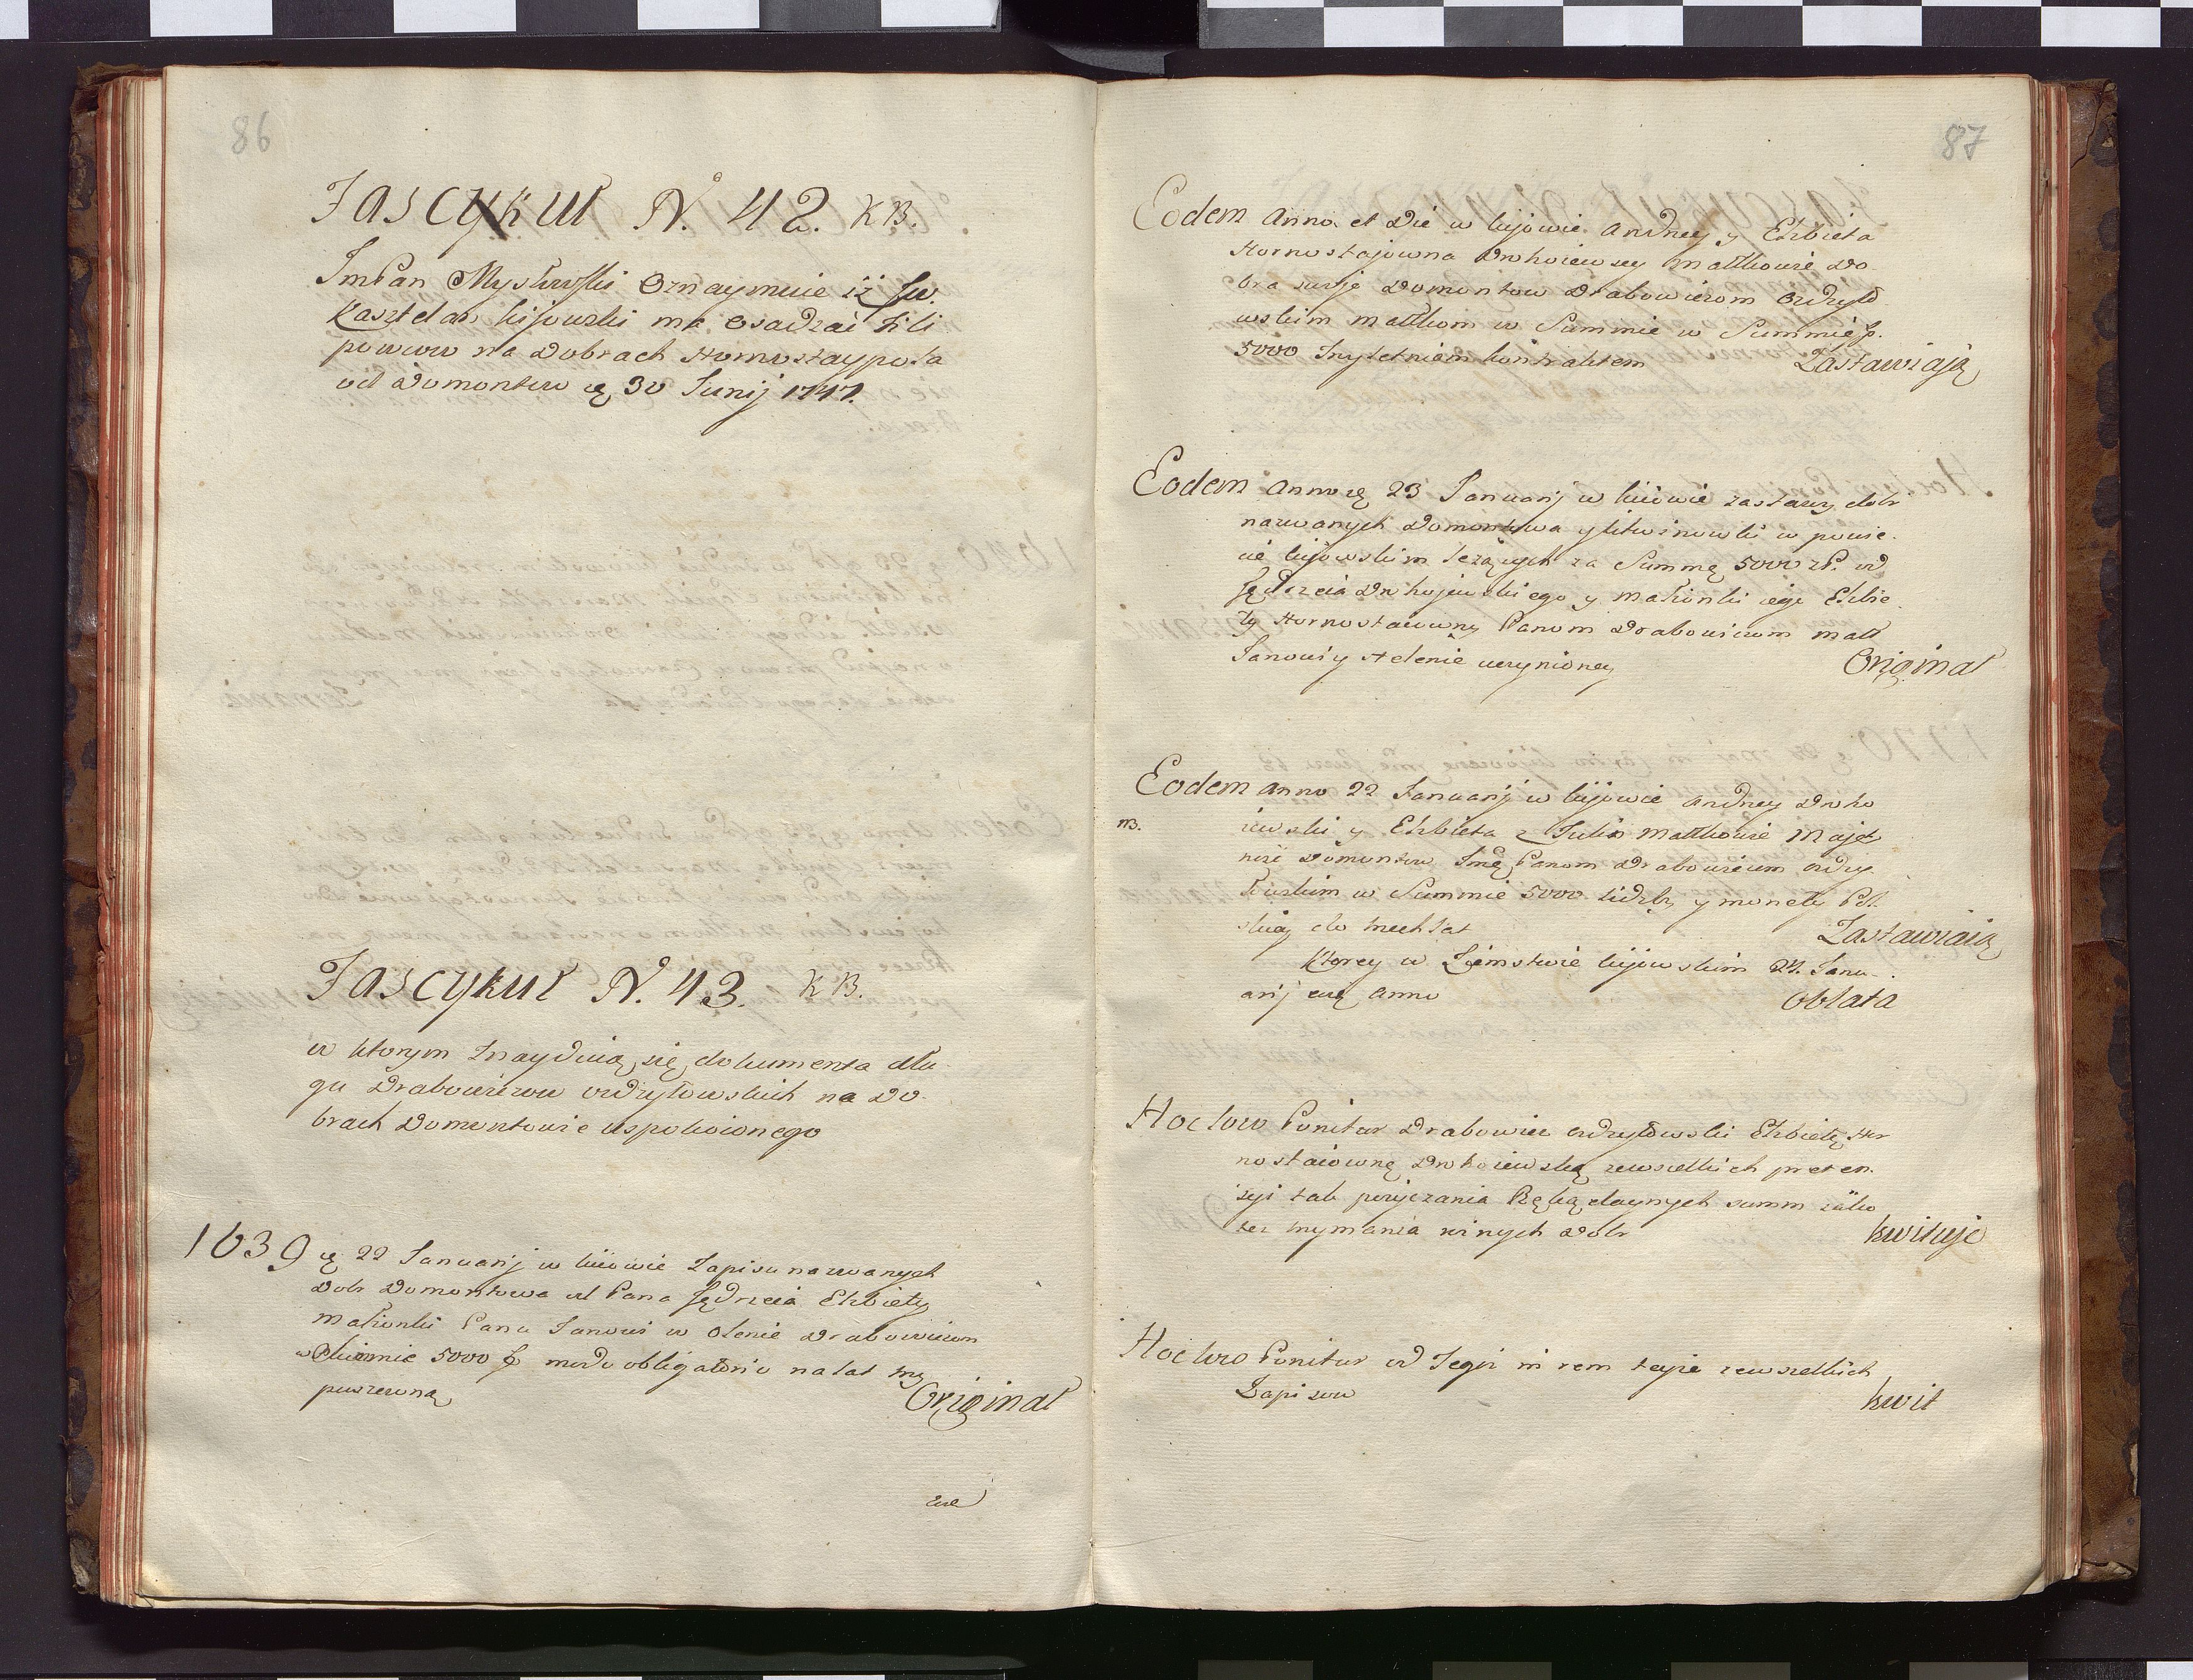 86
Fascykuł N. 42. KB.
ImPan Mysłowski Oznaymuie iż Jw.
Kasztelan kijowski ma osadzać Fili
powow na Dobrach Hornostaypola
od Domontow ą 30 Junij 1747.
Fascykuł N. 43. KB.
w ktorym znayduią się dokumenta dłu
gu Drabowiczow ordzyłowskich na Do
brach Domontowie uspokoionego
1639 ą 22 Januarij w kiiowie Zapisu nazwanych
Dobr Domontowa od Pana Sędzica Elzbiety
małzonki Panu Janowi w Olenie Drabowiczom
w Summie 5000 modo obligatorio na lat trzy
puszczoną Original
87
Eodem Anno et Die w kijowie Andrzey y Elzbieta
Hornostajowna Drohoiewscy małkowie Do
bra swoje Domontow Drabowiczom Ordzył
wskim małkom w Summie w Summie
5000 Trzyletniem kontraktem Zastawiają
Eodem Anno ą 23 Januarij w kiiowie zastawy dobr
nazwanych Domontowa y litwinowki w powie
cie kijowskim lezących za Summę 5000 zł. od
Sędzica Drohojewskiego y małżonki iego Elzbie
ty Hornostaiowny Panom Drabowiczom mał
Janowi y Helenie uczynioney Original
Eodem Anno 22 Januarij w kijowie Andrzey Droho
NB. iewski y Elzbieta z Julia małkowie Majęt
ność Domontow Imę Panom Drabowiczom ordzy
łowskim w Summie 5000 liczby y monety Pol
skiey do trzech lat Zastawiaią
Ktorey w Ziemstwie kijowskim 24. Janu
arij eoq anno Oblata
Hoc loco Ponitur Drabowicz ordzyłowski Elzbietę Hor
nostaiownę Drohoiewską zewszelkich preten
syi tak pozyczania Ręką daynych summ iako
tez trzymania roznych Dobr kwituje
Hoc loco Ponitur od Tegoz in rem teyze zewszelkich
Zapisow kwit